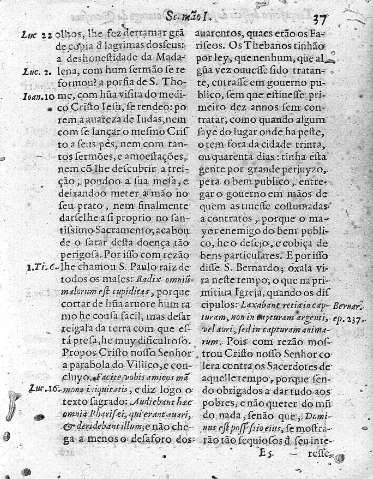 Sermão I. 37
Luc. 22 olhos, lhe fez derramar grã
de copia d lagrimas dos seus:
a deshonestidade da Mada
Luc. 2. lena, com hum sermão se re
formou: a porfia de S. Tho
Ioan. 10 me, com hũa visita do medi
co Cristo Iesu, se rendeo: po
rem a auareza de Iudas, nem
com se lançar o mesmo Cris
to a seus pés, nem com tan-
tos sermões, e amoestações,
nem cõ lhe descubrir a trei-
ção, pondoo a sua mesa, e
deixandoo meter a mão no
seu prato, nem finalmente
darselhe a si proprio no san-
tissimo Sacramento, acabou
de o sarar desta doença tão
perigosa. Por isso com rezão
1. Ti. 6. lhe chamou S. Paulo raiz de
todos os males: Radix omniũ
malorum est cupiditas, porque
cortar de hũa aruore hum ra
mo he cousa facil, mas desar
reigala da terra com que es-
tá presa, he muy dificultoso.
Propos Cristo nosso Senhor
a parabola do Villico, e con-
cluyo. Facite vobis amicos mã
Luc. 16. mona iniquitatis, e diz logo o
texto sagrado: Audiebant hæc
omnia Pharisei, qui erant auari,
& deridebant illum; e não che-
ga a menos o desaforo dos
auarentos, quaes erão os Fa-
riseos. Os Thebanos tinhão
por ley, que nenhum, que al
gũa vez ouuesse sido tratan-
te, entrasse em gouerno pu-
blico, sem que estiuesse pri-
meiro dez annos sem con-
tratar, como quando algum
saye do lugar onde ha peste,
o tem fora da cidade trinta,
ou quarenta dias: tinha esta
gente por grande perjuyzo,
pera o bem publico, entre-
gar o gouerno em mãos de
quem as tiuesse costumadas
a contratos, porque o ma-
yor enemigo do bem publi-
co, he o desejo, e cobiça de
bens particulares. E por isso
disse S. Bernardo; oxala vi-
ra neste tempo, o que na pri-
mitiua Igreja, quando os dis
cipulos: Laxabant retia in cap-
turam, non in capturam argenti,
vel auri, sed in capturam anima-
rum. Pois com rezão mos-
Bernar.
ep. 237.
trou Cristo nosso Senhor co
lera contra os Sacerdotes de
aquelle tempo, porque sen-
do obrigados a dar tudo aos
pobres, e não querer do mũ
do nada, senão que, Domi-
nus est possessio eius, se mostra-
rão tão sequiosos d seu inte-
E5 resse,